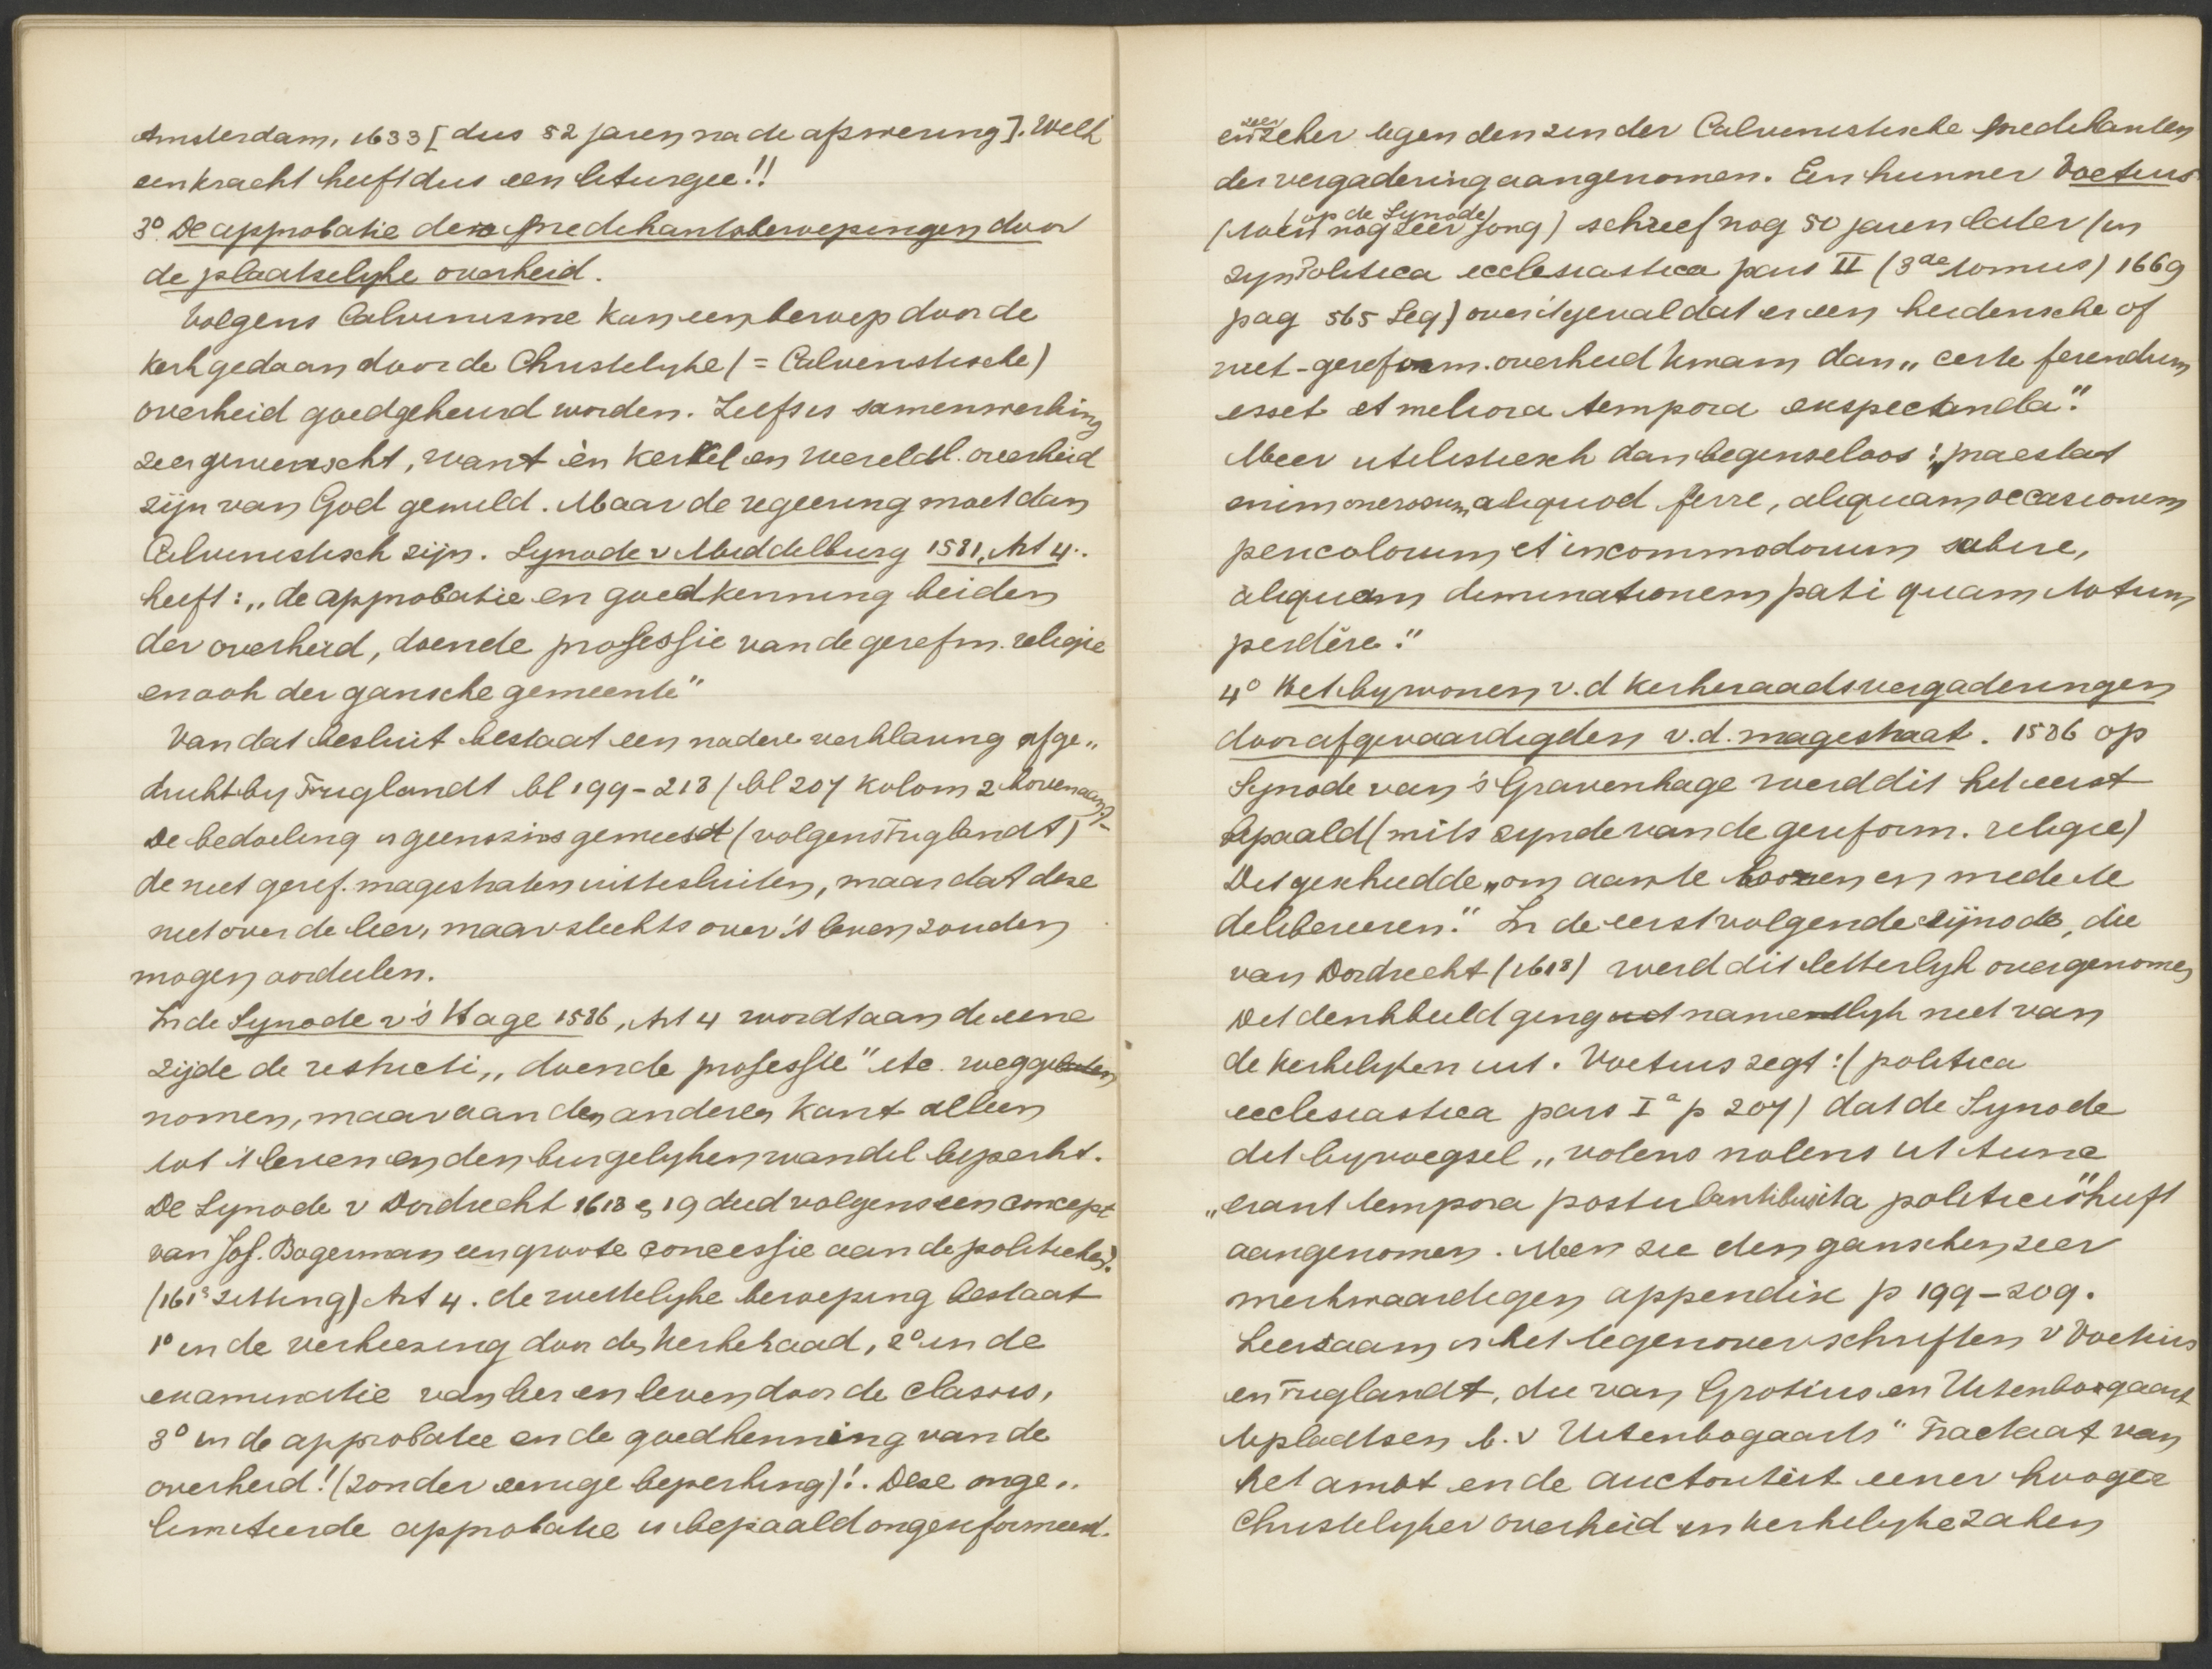 Amsterdam, 1633 [dus 52 jaren na de afzwering]. Welk
een kracht heeft dus een liturgie!!
3° De approbatie der predikantsberoepingen door
de plaatselyke overheid.
Volgens Calvinisme kan een beroep door de
kerk gedaan door de Christelyke (= Calvinistische)
overheid goedgekeurd worden. Zelfs is samenwerking
zeer gewenscht, want èn kerkel en wereldl. overheid
zijn van God gewild. Maar de regeering moet dan
Calvinistisch zijn. Synode v Middelburg 1581, Art 4.
heeft: „de approbatie en goedkenning beiden
der overheid, doende professie van de gerefm. religie
en ook der gansche gemeente"
Van dat besluit bestaat een nadere verklaring afge„
drukt by Triglandt bl 199-213 (bl 207 kolom 2 bovenaan)-
De bedoeling is geenszins geweest (volgens Triglandt)
de niet geref. magistraten uittesluiten, maar dat deze
niet over de leer, maar slechts over 't leven zouden
mogen oordeelen.
In de Synode v 's Hage 1586, Art 4 wordt aan de eene
zijde de restricti „doende professie" etc. wegge
nomen, maar aan den anderen kant alleen
tot 't leven en den burgelyken wandel beperkt.
De Synode v Dordrecht 1618 & 19 deed volgens een concept
van Joh. Bogerman een groote concessie aan de politieken.
(161e zitting) Art 4. de wettelyke beroeping bestaat
1° in de verkiezing door den kerkeraad, 2° in de
examinatie van leer en leven door de classis,
3° in de approbatie en de goedkenning van de
overheid! (zonder eenige beperking)!. Deze onge„
limiteerde approbatie is bepaald ongereformeerd.
en zeer zeker tegen den zin der Calvinistische predikanten
der vergadering aangenomen. Een hunner Voetius
(toen (op de Synode) nog zeer jong) schreef nog 50 jaren later (in
zyn Politica ecclesiastica pars II (3de tomus) 1669
pag 565 seq) over 't geval dat er een heidensche of
niet-gereform. overheid kwam dan „certe ferendum
esset et meliora tempora exspectanda".
Meer utilistisch dan beginselloos: „praestat
enim onerosum aliquod ferre, aliquam occasionem
periculorum et incommodorum subire,
aliquam diminutionem pati quam totum
perdĕre."
4° Het bywonen v.d kerkeraadsvergaderingen
door afgevaardigden v.d. magistraat. 1586 op
Synode van 's Gravenhage werd dit het eerst
bepaald (mits zynde van de gereform. religie)
Dit geschiedde „om aan te hooren en mede te
delibereeren." In de eerstvolgende sijnode, die
van Dordrecht (1618) werd dit letterlyk overgenomen
Dit denkbeeld ging namelyk niet van
de kerkelyken uit. Voetius zegt: (politica
ecclesiastica pars Ia p 207) dat de Synode
dit byvoegsel „volens nolens ut tunc
„erant tempora postulantibus ita politicis" heeft
aangenomen. Men zie den ganschen zeer
merkwaardigen appendix p 199-209.
Leerzaam is het tegenover schriften v Voetius
en Triglandt, die van Grotius en Uitenbogaart
te plaatsen b.v Uitenbogaarts "Tractaat van
het ambt ende auctoriteit eener hooger
Christelyker overheid in kerkelyke zaken